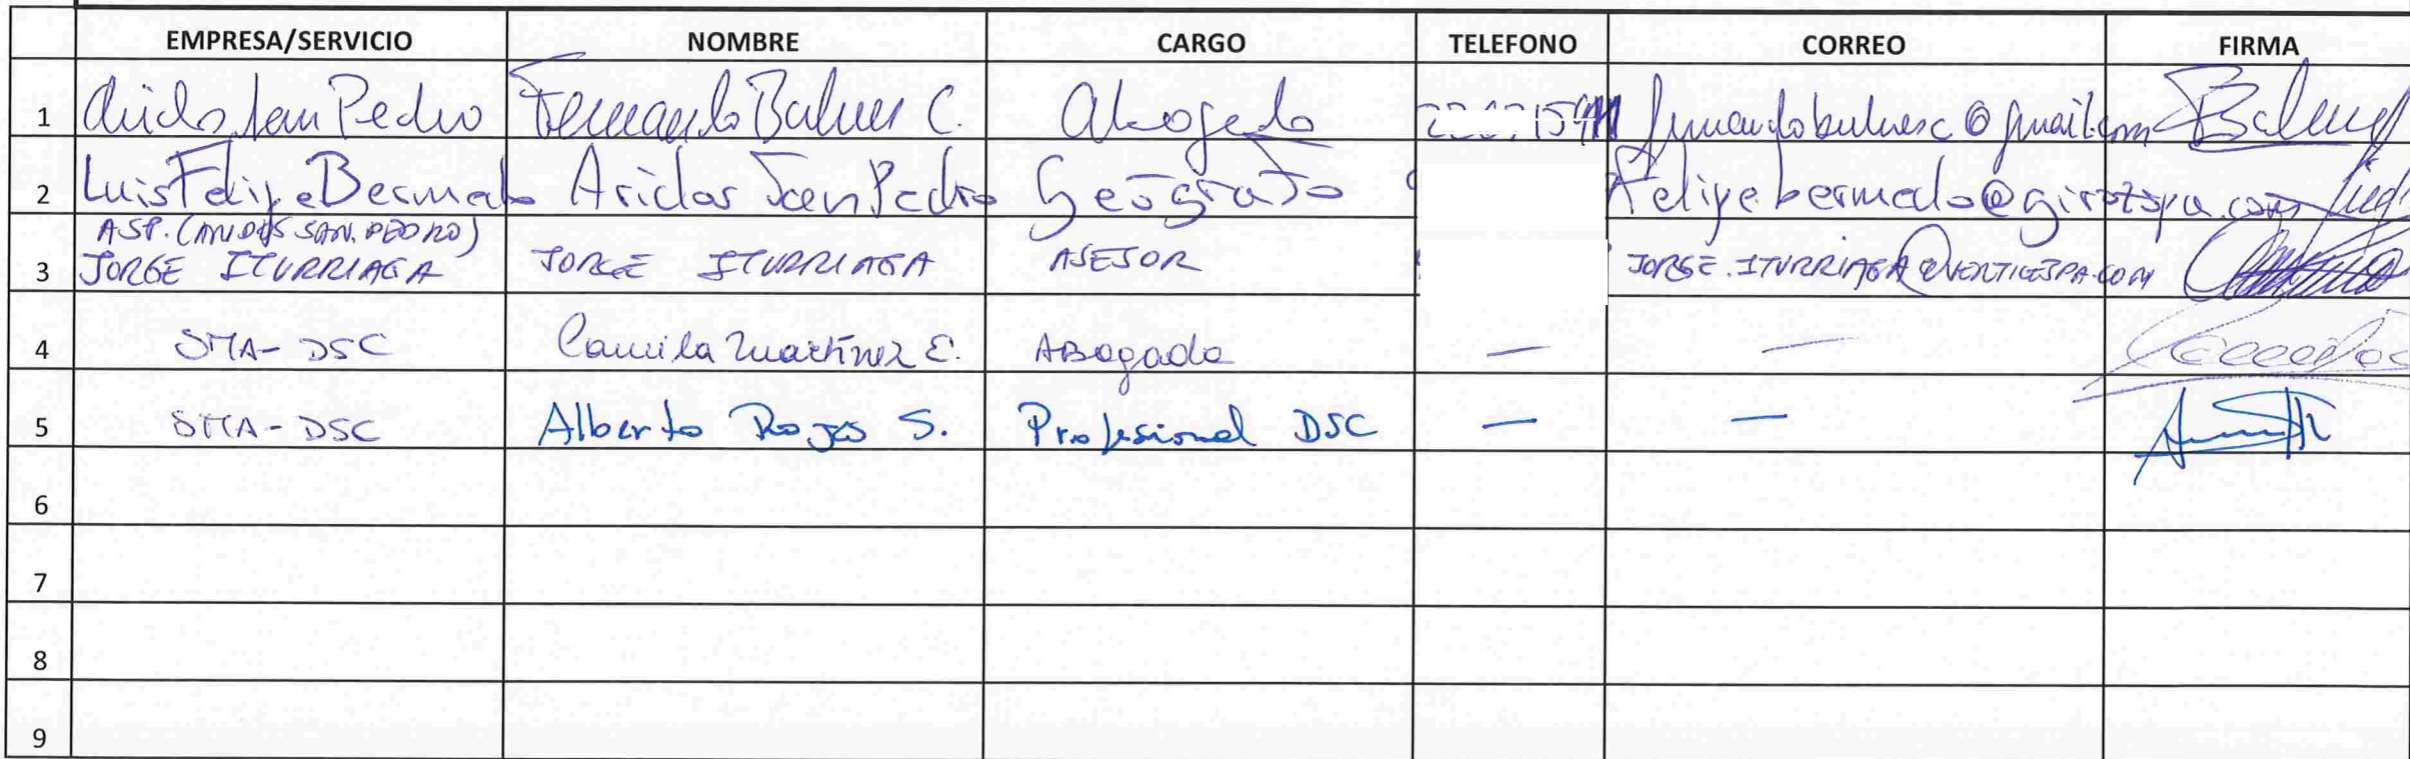 EMPRESA/SERVICIO NOMBRE CARGO TELEFONO CORREO FIRMA
1 Aridos San Pedro Fernando Bulnes C. Abogado fernandobulnesc@gmail.com
2 Luis Felipe Bermedo Aridos San Pedro Geógrafo felipe.bermedo@girotspa.com
ASP. (ARIDOS SAN. PEDRO)
3 JORGE ITURRIAGA JORGE ITURRIAGA ASESOR JORGE.ITURRIAGA@VERTICESPA.COM
4 SMA-DSC Camila Martínez E. ABogada — —
5 SMA-DSC Alberto Rojas S. Profesional DSC — —
6
7
8
9